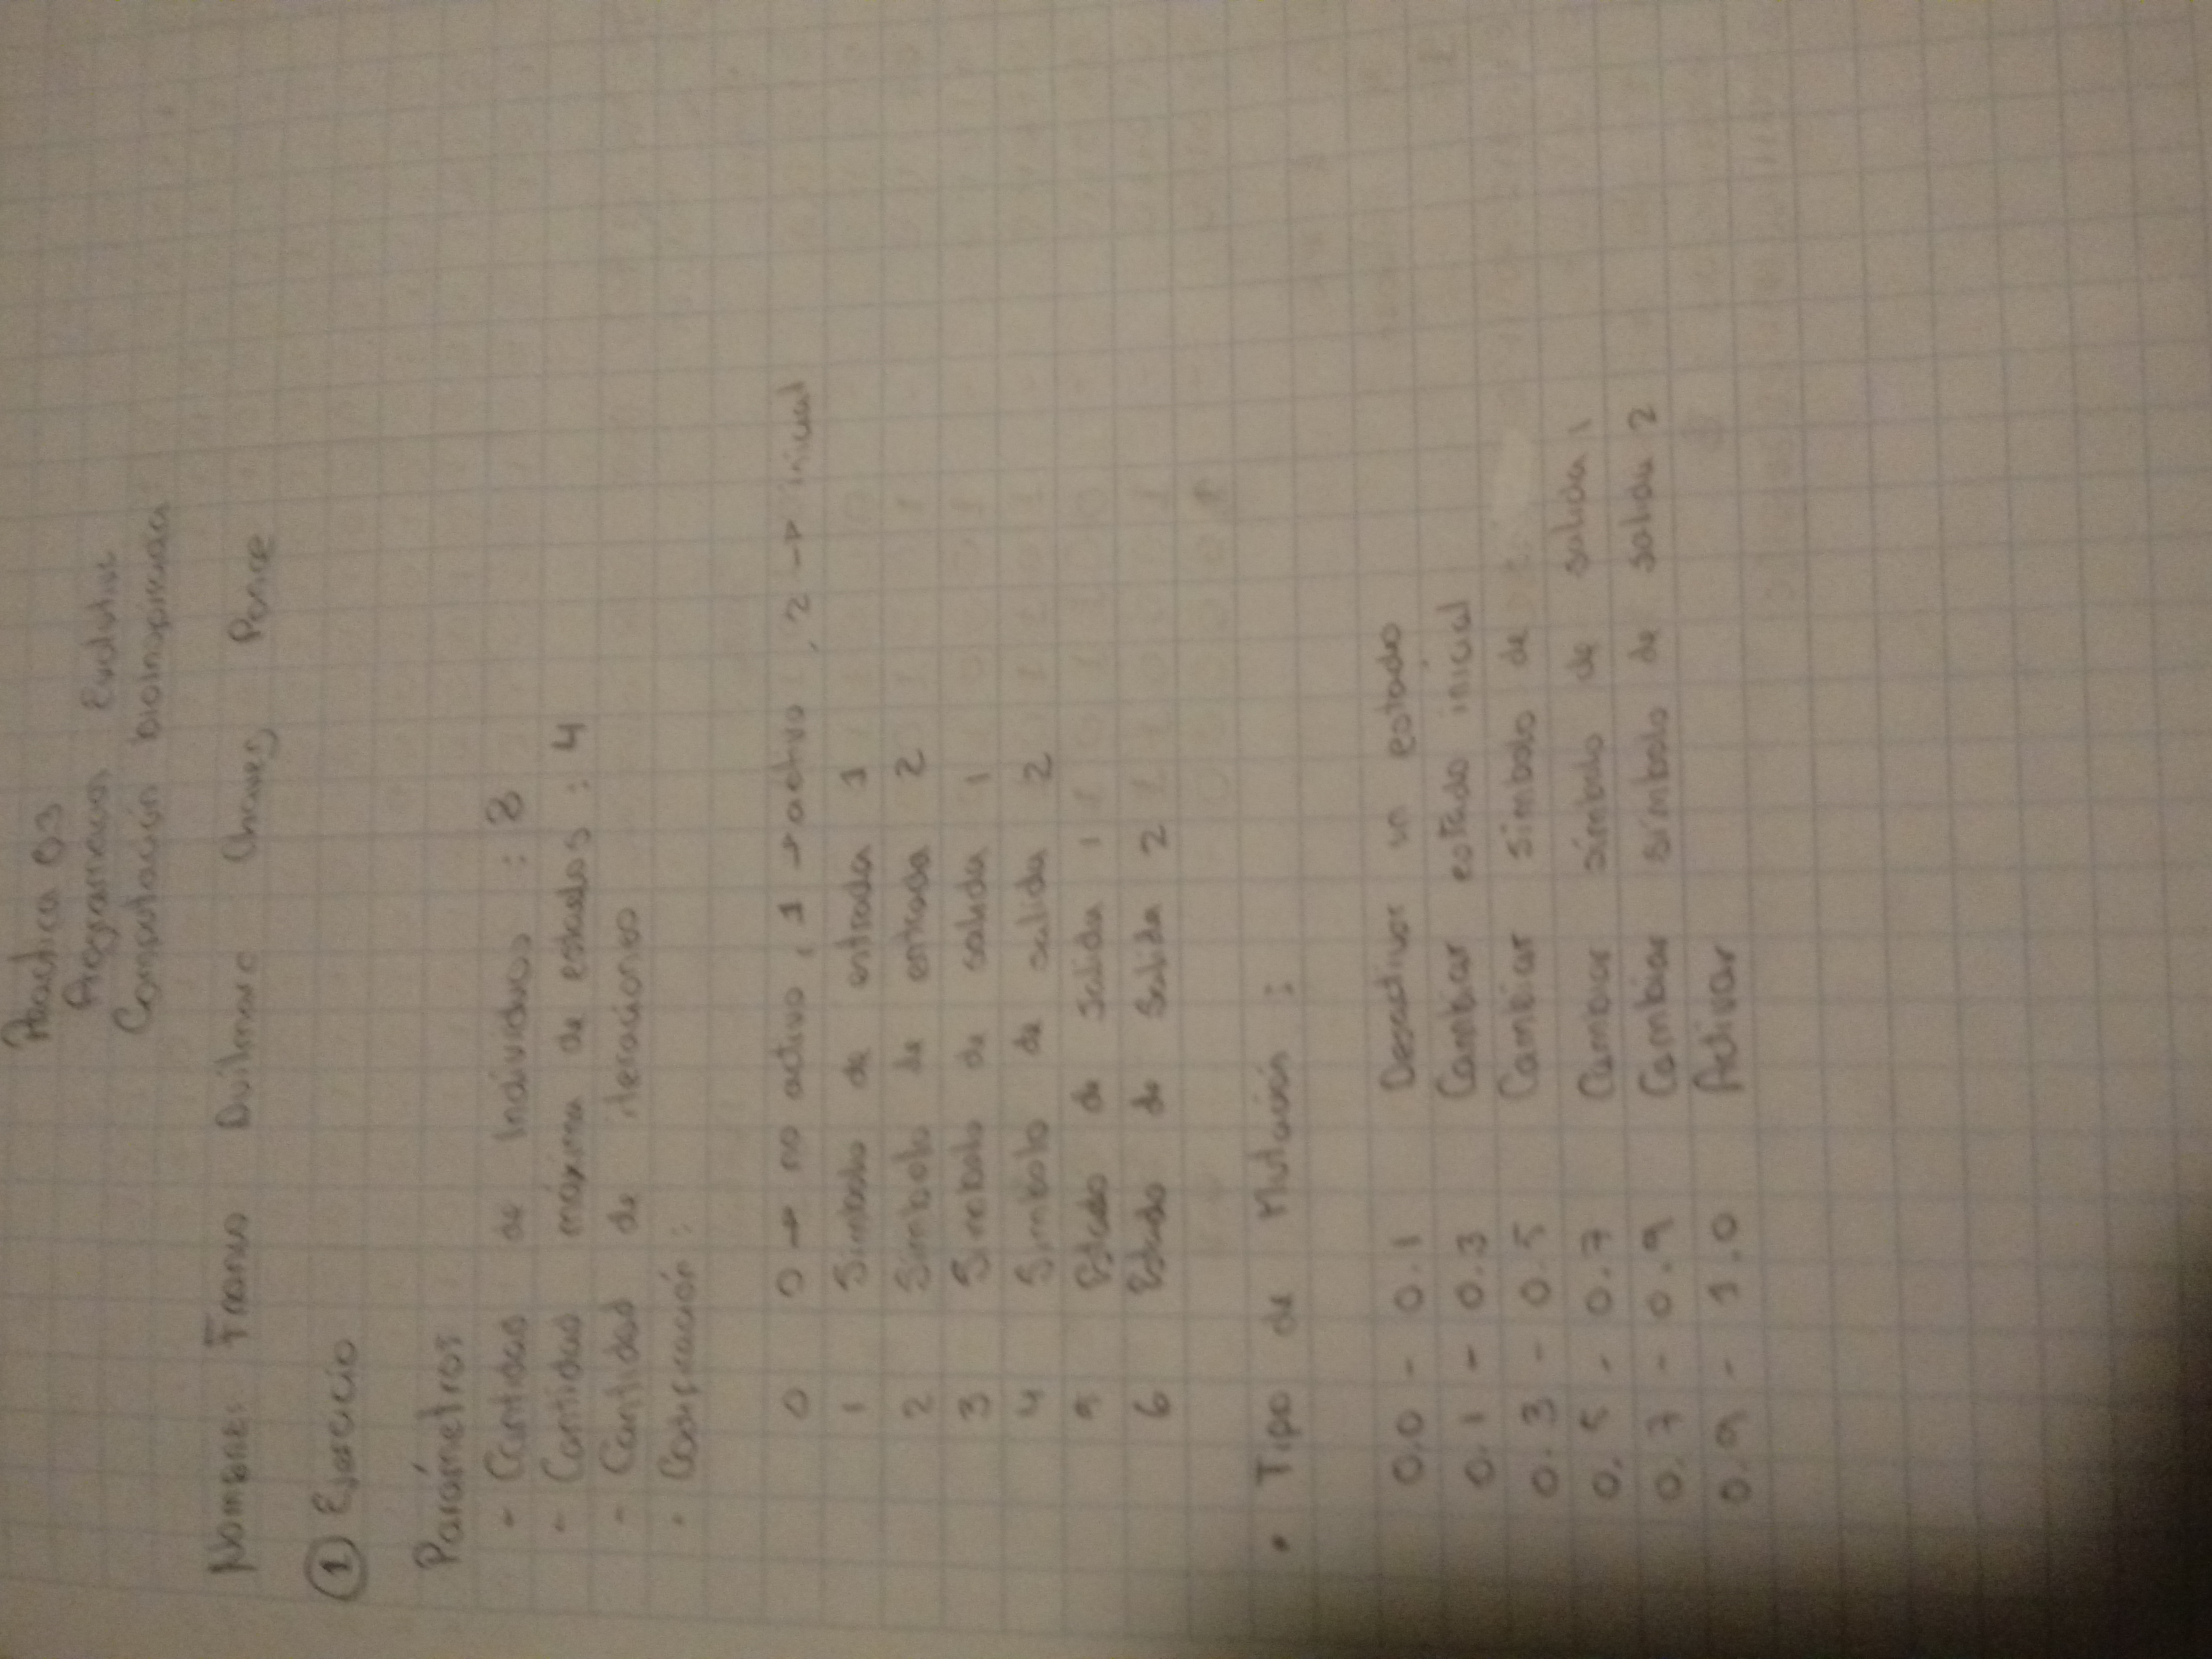 Practica 03
Programación Evolutiva
Computación bioinspirada
Nombre: Franco Duilmarc Chaves Ponce
① Ejercicio
Parámetros
- Cantidad de individuos : 8
- Cantidad máxima de estados : 4
- Cantidad de iteraciones
- Codificación :
0 0 → no activo, 1 → activo, 2 → inicial
1 Simbolo de entrada 1
2 Simbolo de entrada 2
3 Simbolo de salida 1
4 Simbolo de salida 2
5 Estado de salida 1
6 Estado de Salida 2
• Tipo de Mutación :
0.0 - 0.1 Desactivar un estado
0.1 - 0.3 Cambiar estado inicial
0.3 - 0.5 Cambiar simbolo de
0.5 - 0.7 Cambiar simbolo de salida 1
0.7 - 0.9 Cambiar simbolo de salida 2
0.9 - 1.0 Activar